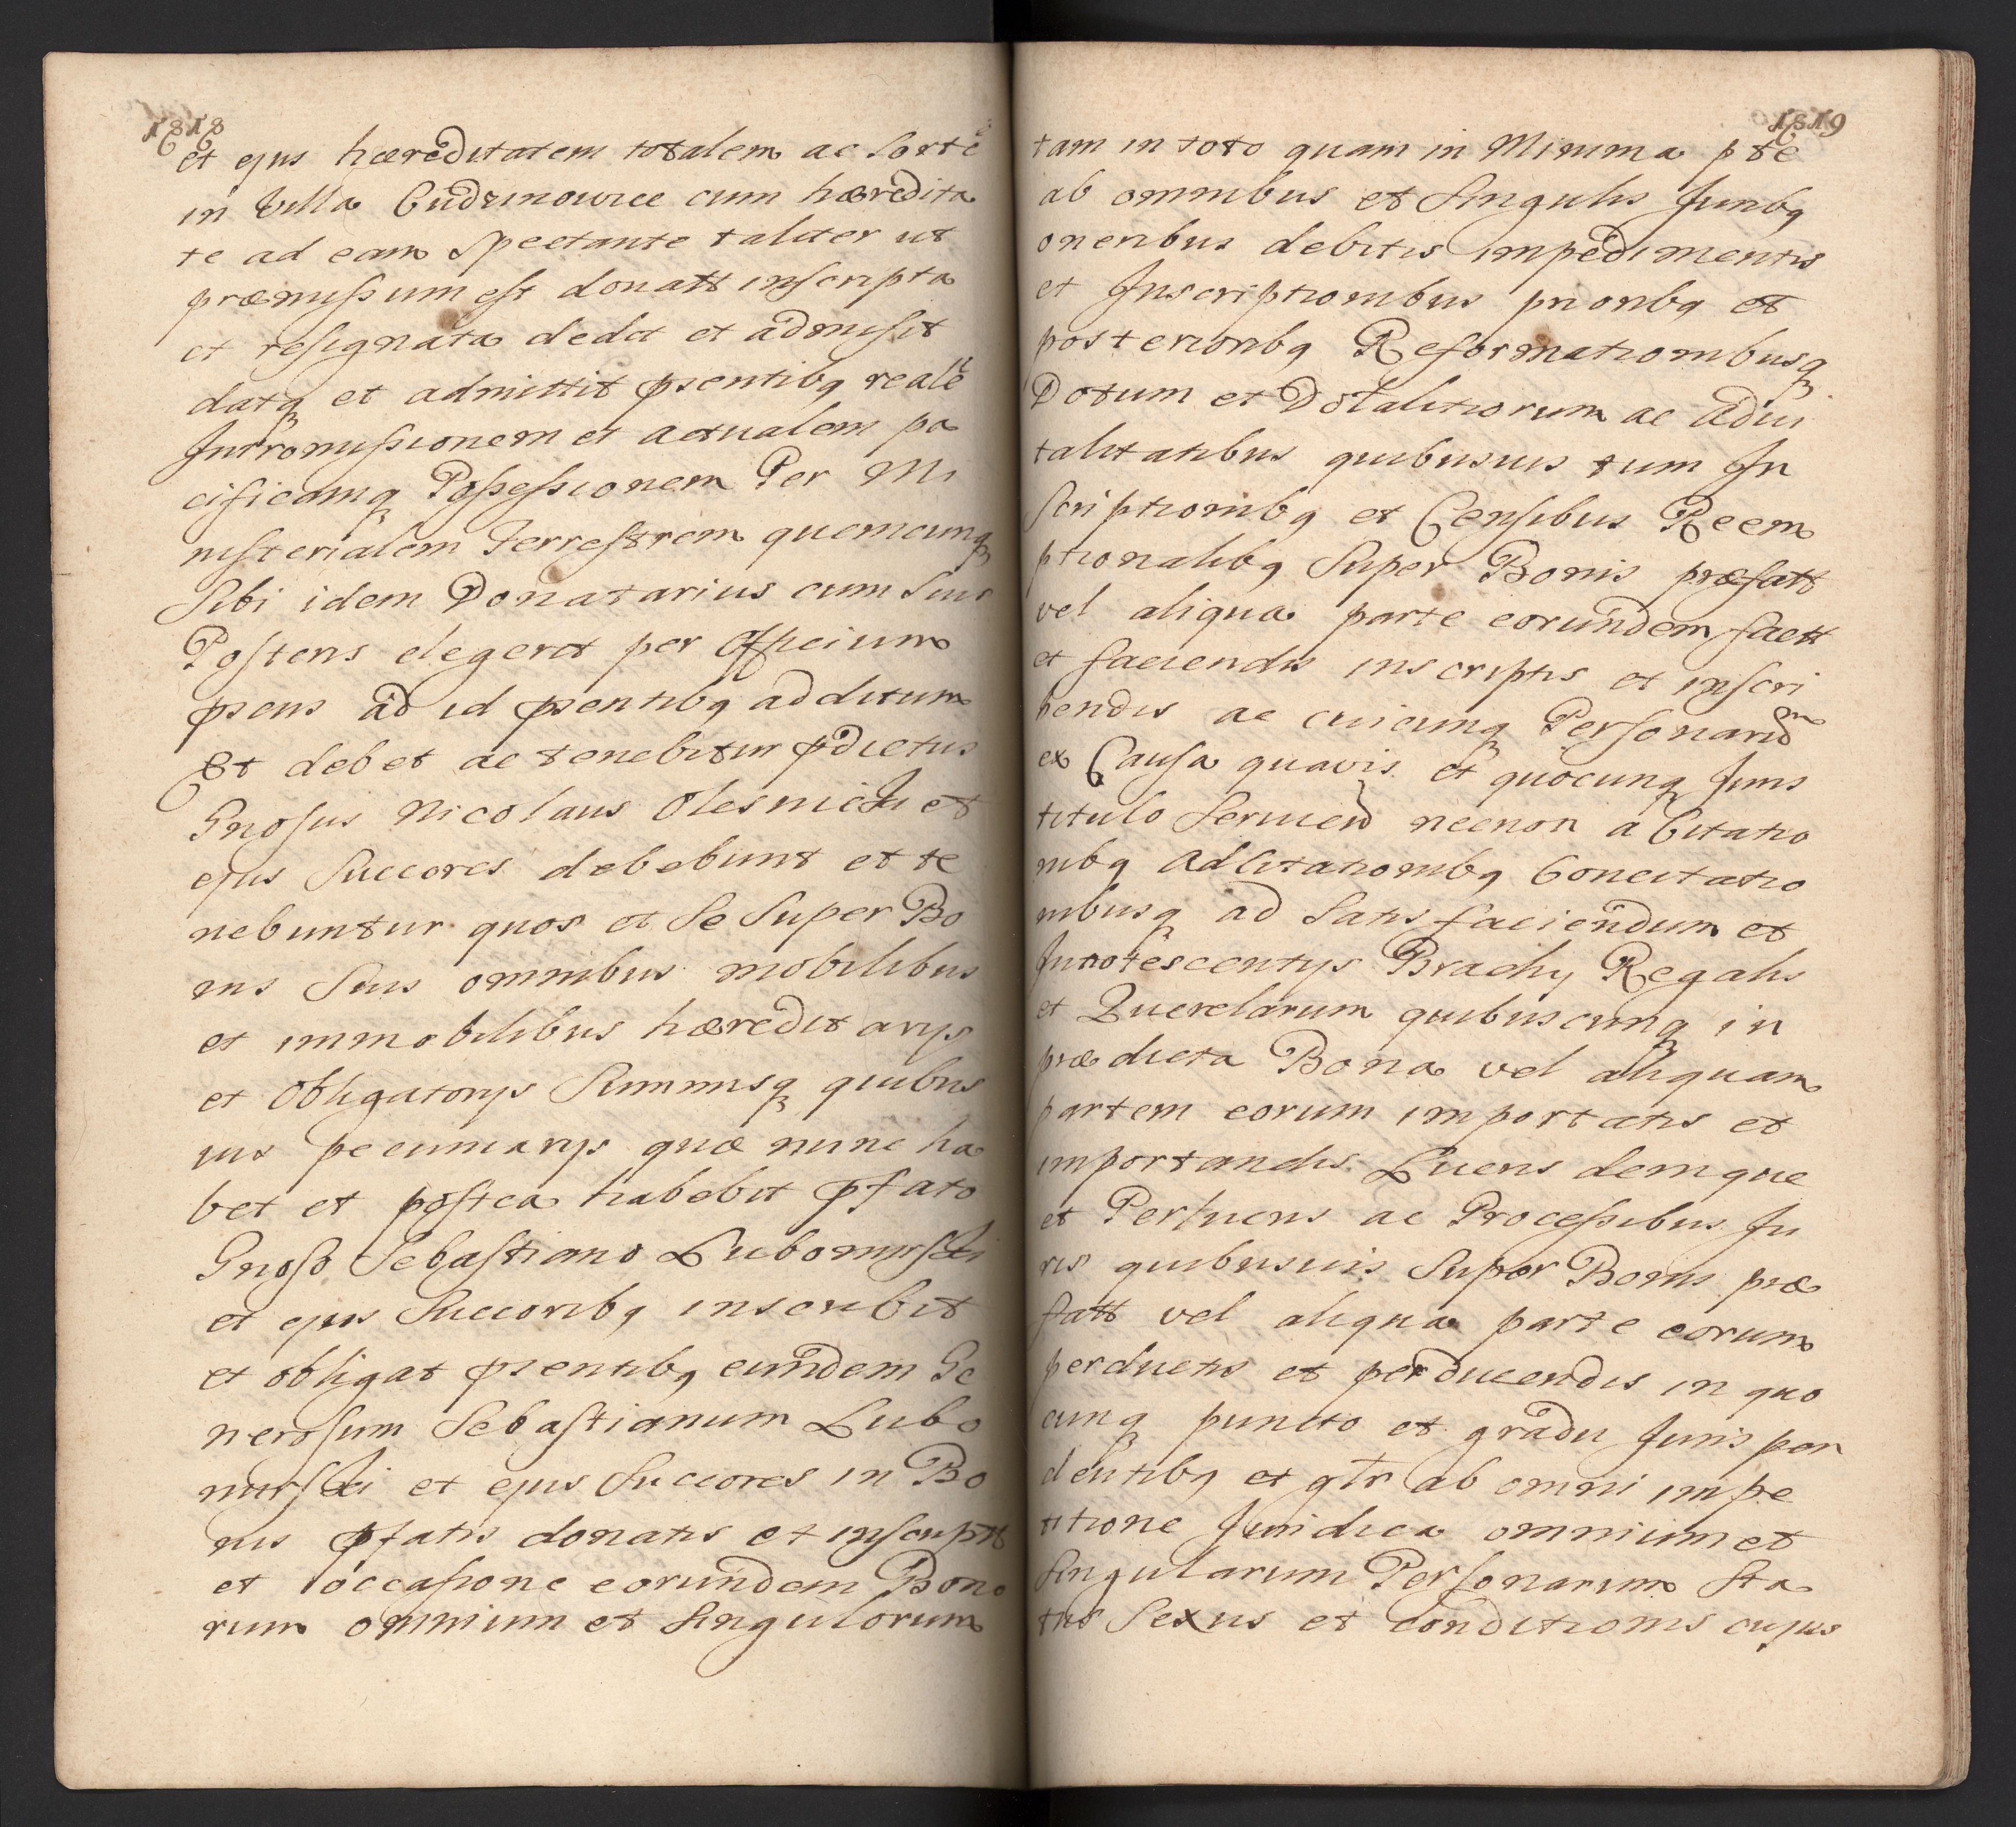 1818
et ejus hæreditatem totalem ac Sorte
in Villa Cudzinowice cum hæredita
te ad eam Spectante taliter ut
præmissum est donatt inscripta
et resignata dedit et admisit
datq et admittit psentibq reale
Intromissionem et actualem pa
cificamq Possessionem Per Mi
nisterialem Terrestrem quemcunq
Sibi idem Donatarius cum Suis
Posteris elegerit per Officium
psens ad id psentibq additum
Et debet ac tenebitur pdictus
Gnosus Nicolaus Olesnicki et
ejus Succores debebunt et te
nebuntur quos et Se Super Bo
nis Suis omnibus mobilibus
et immobilibus hæreditarijs
et Obligatorijs Summisq quibus
uis pecuniarijs quæ nunc ha
bet et postea habebit pfato
Gnoso Sebastiano Lubomirski
et ejus Succoribq inscribit
et obligat psentibq eundem Ge
nerosum Sebastianum Lubo
mirski et ejus Succores in Bo
nis pfatis donatis et inscriptt
et occasione eorundem Bono
rum omnium et Singulorum
1819
tam in toto quam in Minima pte
ab omnibus et Singulis Juribq
oneribus debitis impedimentis
et Inscriptionibus prioribq et
posterioribq Reformationibusq
Dotum et Dotalitiorum ac advi
talitatibus quibusuis tum In
scriptionibq et Censibus Reem
ptionalibq Super Bonis præfatt
vel aliqua parte eorundem factt
et faciendis inscriptis et inscri
bendis ac cuicunq Personarum
ex Causa quavis et quocunq Juris
titulo Seruien necnon a Citatio
nibq Adcitationibq Concitatio
nibusq ad Satisfaciendum et
Innotescentijs Brachij Regalis
et Querelarum quibuscunq in
prædicta Bona vel aliquam
partem eorum importatis et
importandis Lucris demque
et Perlucris ac Processibus Ju
ris quibusuis Super Bonis præ
fatt vel aliqua parte eorum
perductis et perducendis in quo
cunq puncto et gradu Juris pen
dentibq et gtr ab omni impe
titione Juridica omnium et
Singularum Personarum Sta
tus Sexus et conditionis cujus